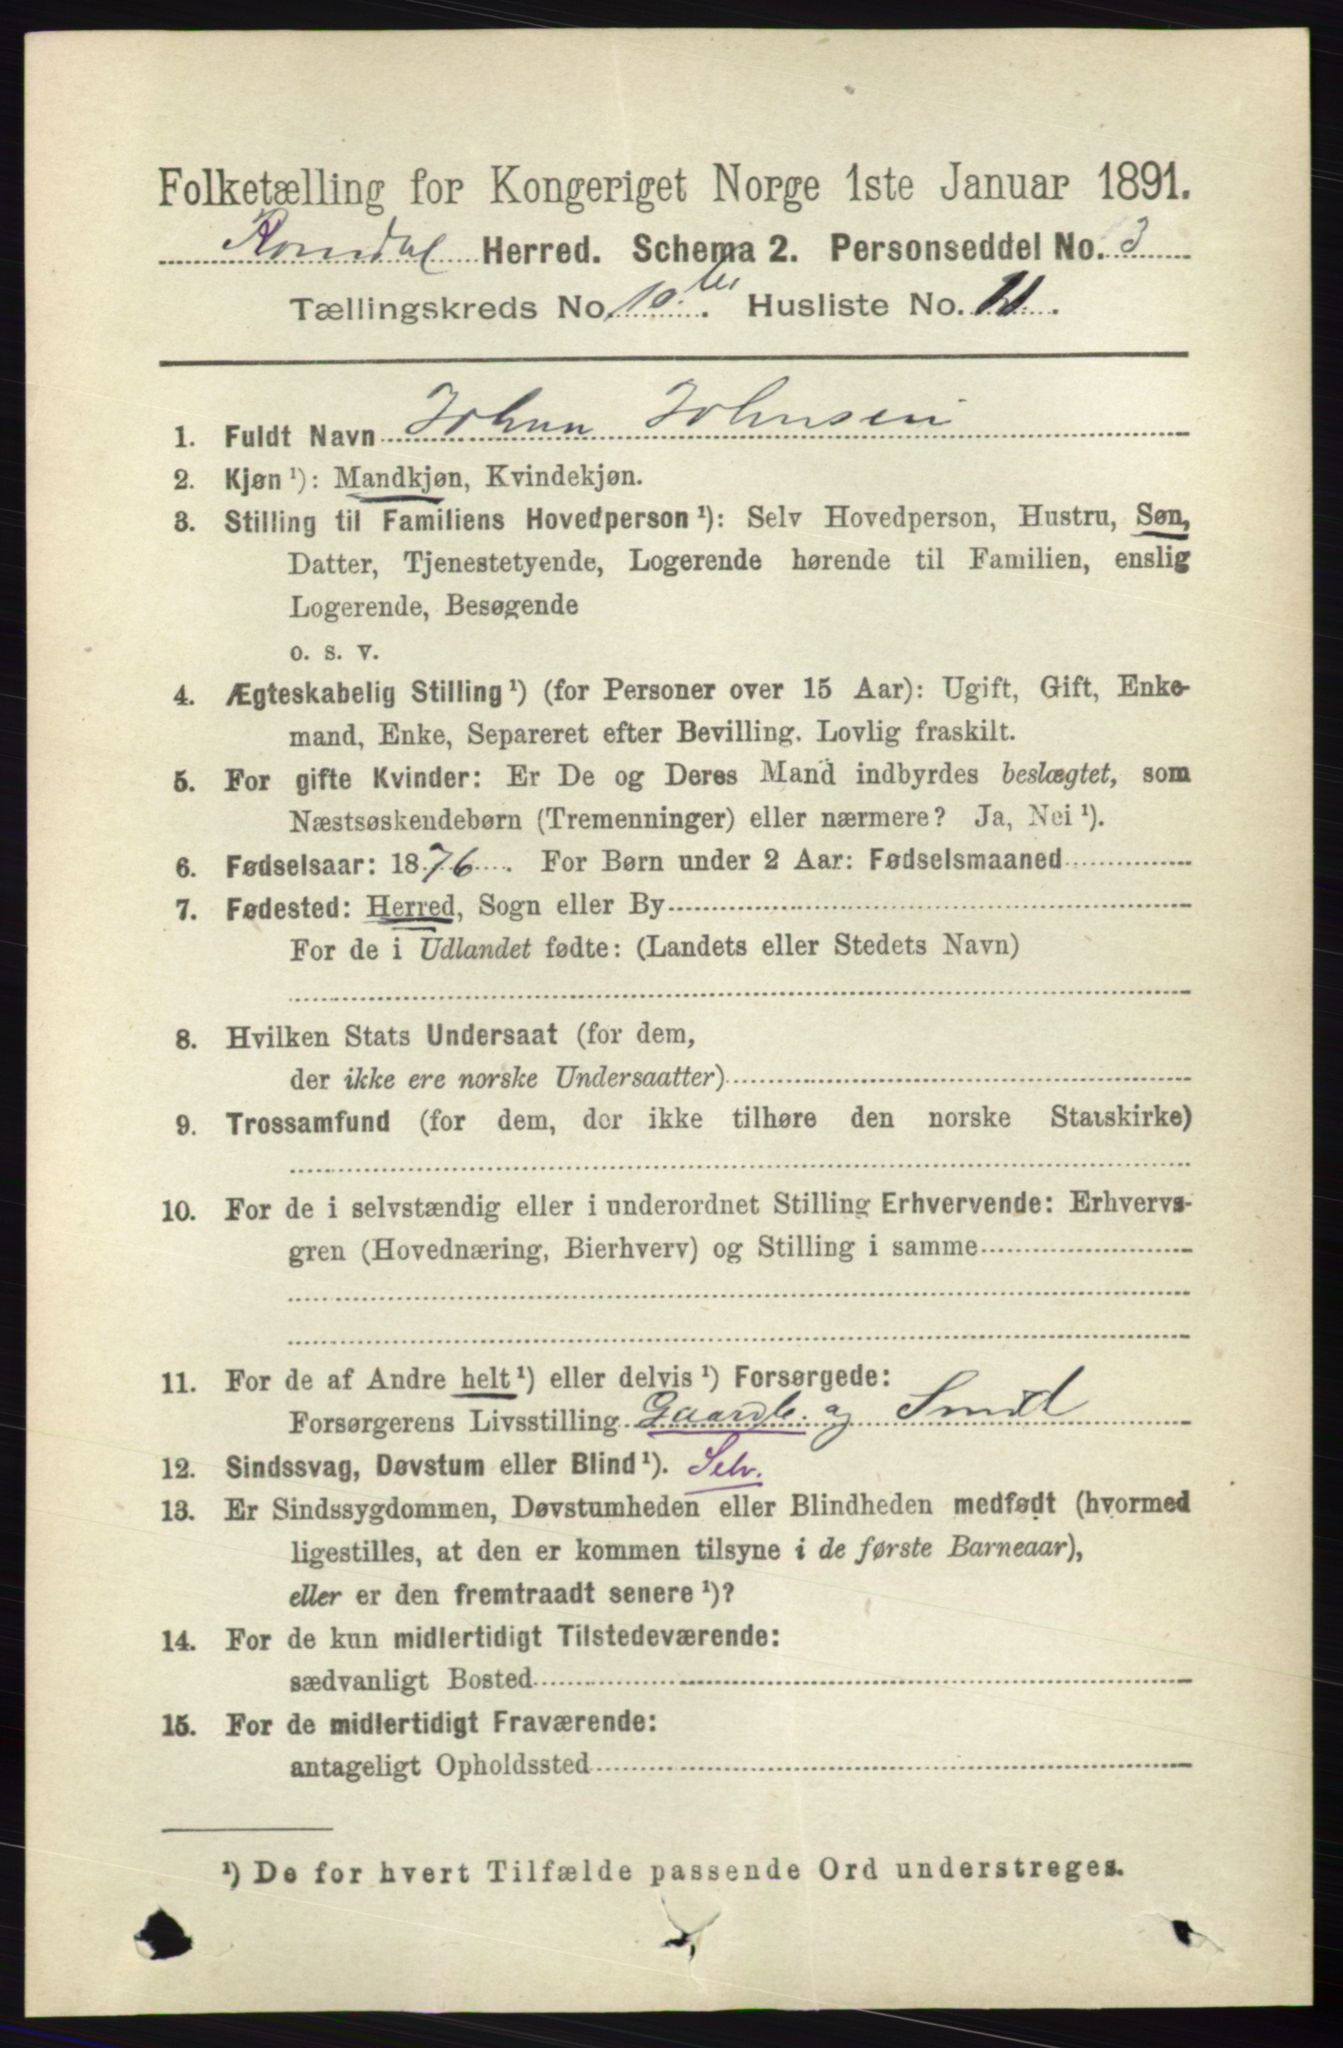 Folketælling for Kongeriget Norge 1ste Januar 1891.
Romdal Herred. Schema 2. Personseddel No. 3
Tællingskreds No. 10de. Husliste No. 11.
1. Fuldt Navn Johan Johnsen
2. Kjøn ¹): Mandkjøn, Kvindekjøn.
3. Stilling til Familiens Hovedperson ¹): Selv Hovedperson, Hustru, Søn,
Datter, Tjenestetyende, Logerende hørende til Familien, enslig
Logerende, Besøgende
o. s. v.
4. Ægteskabelig Stilling ¹) (for Personer over 15 Aar): Ugift, Gift, Enke-
mand, Enke, Separeret efter Bevilling. Lovlig fraskilt.
5. For gifte Kvinder: Er De og Deres Mand indbyrdes beslægtet, som
Næstsøskendebørn (Tremenninger) eller nærmere? Ja, Nei ¹).
6. Fødselsaar: 1876. For Børn under 2 Aar: Fødselsmaaned
7. Fødested: Herred, Sogn eller By
For de i Udlandet fødte: (Landets eller Stedets Navn)
8. Hvilken Stats Undersaat (for dem,
der ikke ere norske Undersaatter)
9. Trossamfund (for dem, der ikke tilhøre den norske Statskirke)
10. For de i selvstændig eller i underordnet Stilling Erhvervende: Erhvervs-
gren (Hovednæring, Bierhverv) og Stilling i samme
11. For de af Andre helt ¹) eller delvis ¹) Forsørgede:
Forsørgerens Livsstilling Gaardb. og Smed
12. Sindssvag, Døvstum eller Blind ¹). Selv.
13. Er Sindssygdommen, Døvstumheden eller Blindheden medfødt (hvormed
ligestilles, at den er kommen tilsyne i de første Barneaar),
eller er den fremtraadt senere ¹)?
14. For de kun midlertidigt Tilstedeværende:
sædvanligt Bosted
15. For de midlertidigt Fraværende:
antageligt Opholdssted
¹) De for hvert Tilfælde passende Ord understreges.